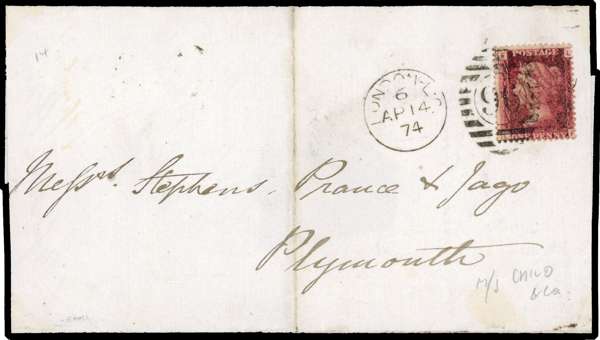 14
POSTAGE
LONDON
6
AP 14
74
Messrs. Stephens, Prance & Jago
Plymouth
M/s CHILD
& Co.